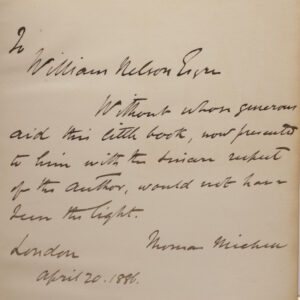 To
William Nelson Esqre
Without whose generous
aid this little book, now presented
to him with the sincere respect
of the author, would not have
seen the light.
London
April 20. 1886.